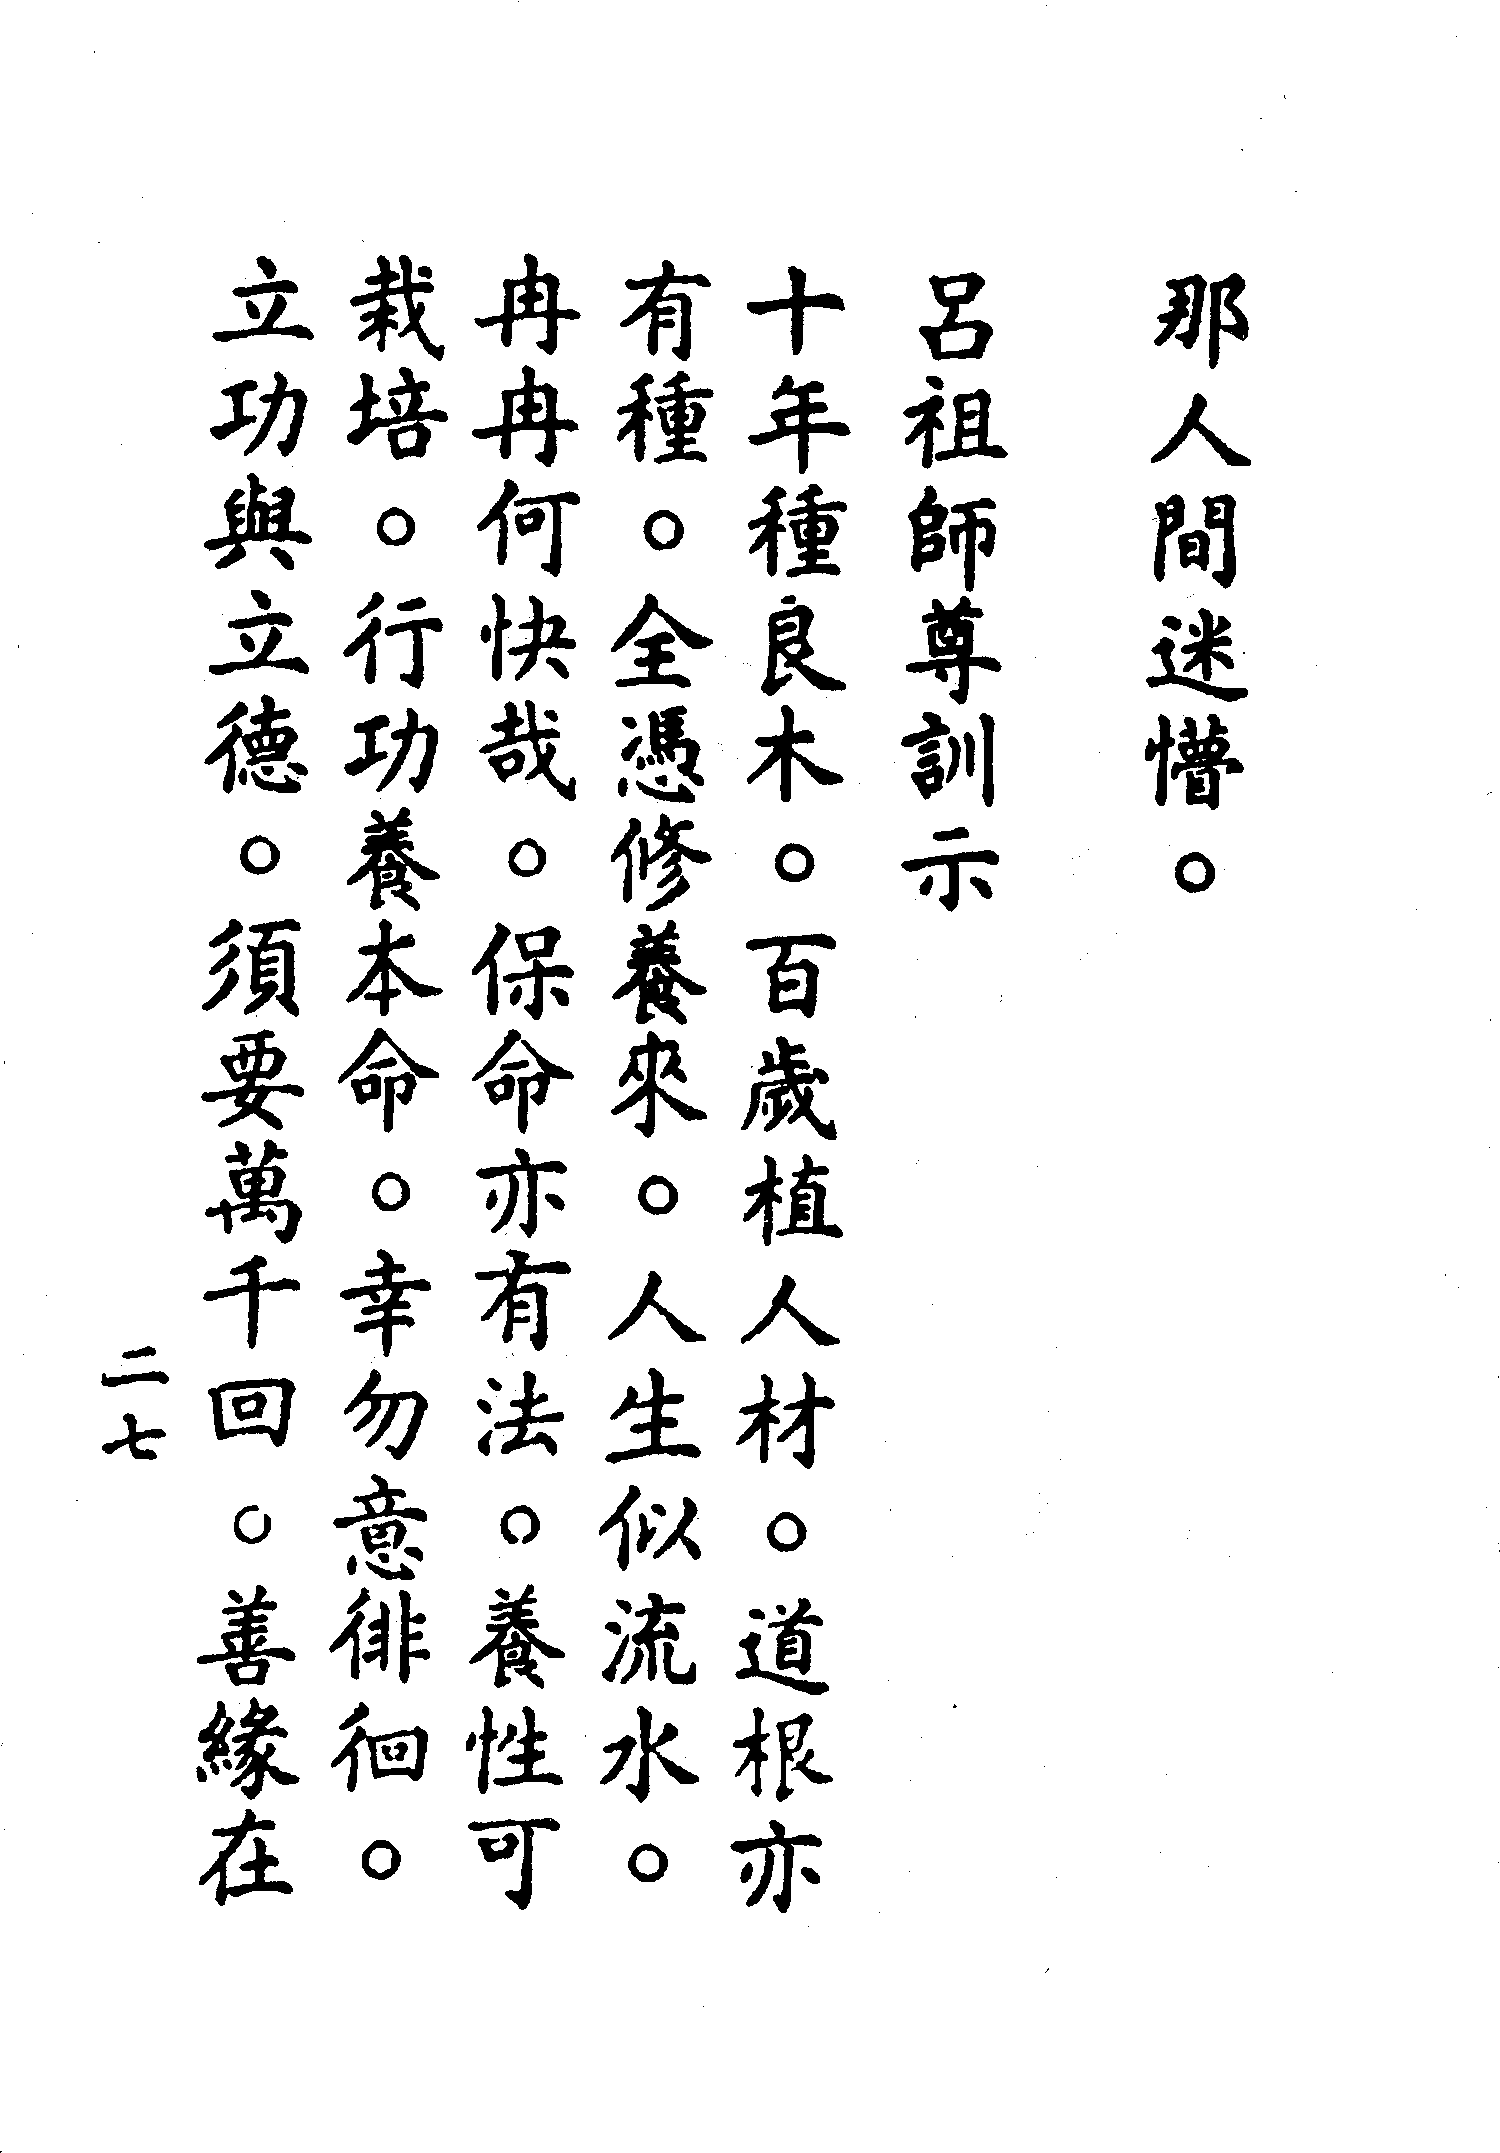 那人間迷懵。
呂祖師尊訓示
十年種良木。百歲植人材。道根亦
有種。全憑修養來。人生似流水。
冉冉何快哉。保命亦有法。養性可
栽培。行功養本命。幸勿意徘徊。
立功與立德。須要萬千回。善緣在
二七